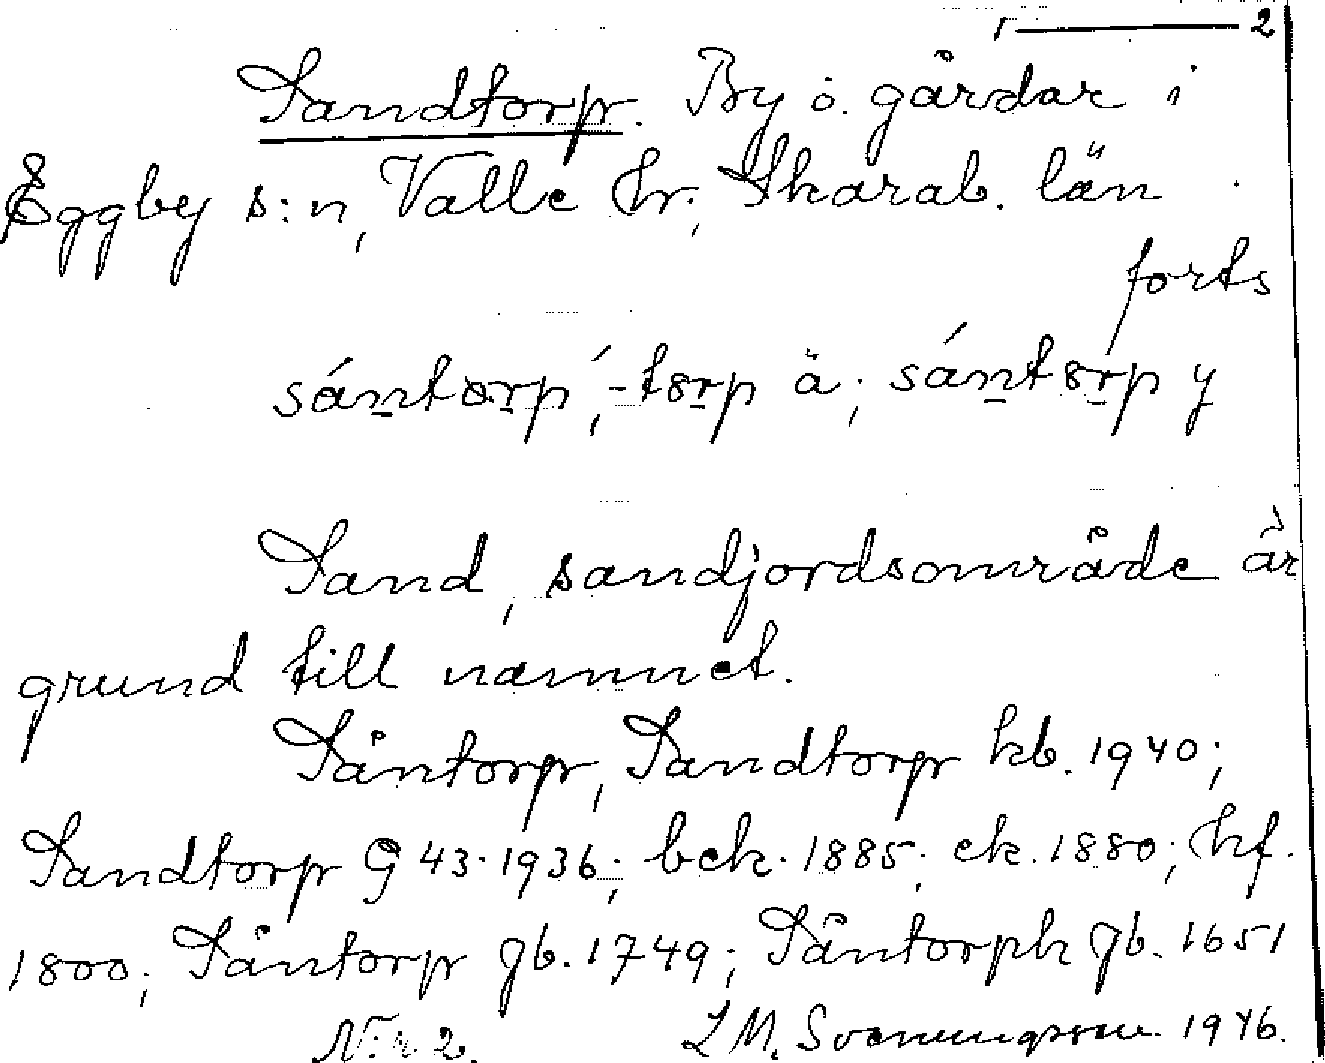 1 — 2
Sandtorp. By o. gårdar i
Eggby s:n, Valle hr, Skarab. län
forts
sántorp, -torp ä; sántorp y
Sand, sandjordsområde är
grund till namnet.
Såntorp, Sandtorp kb. 1940;
Sandtorp G 43. 1936; bek. 1885; ek. 1880; hf.
1800; Såntorp jb. 1749; Såntorph jb. 1651
N:r 2. L M. Svenungsson 1946.